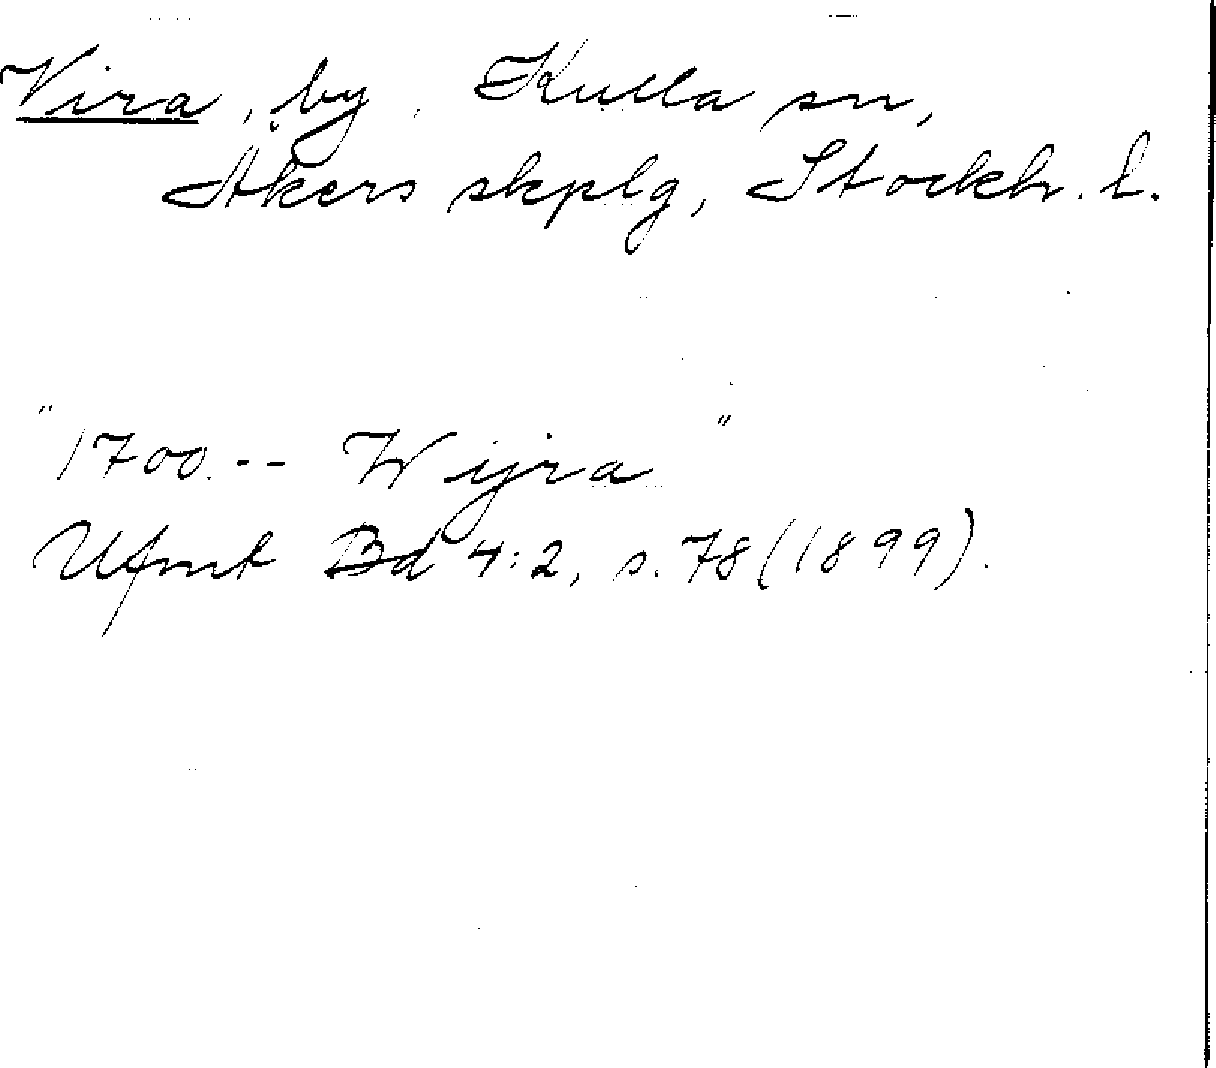 Vira, by, Kulla sn,
Åkers skplg, Stockh. l.
"1700.-- Wijra"
Ufmt Bd 4:2, s. 78 (1899).